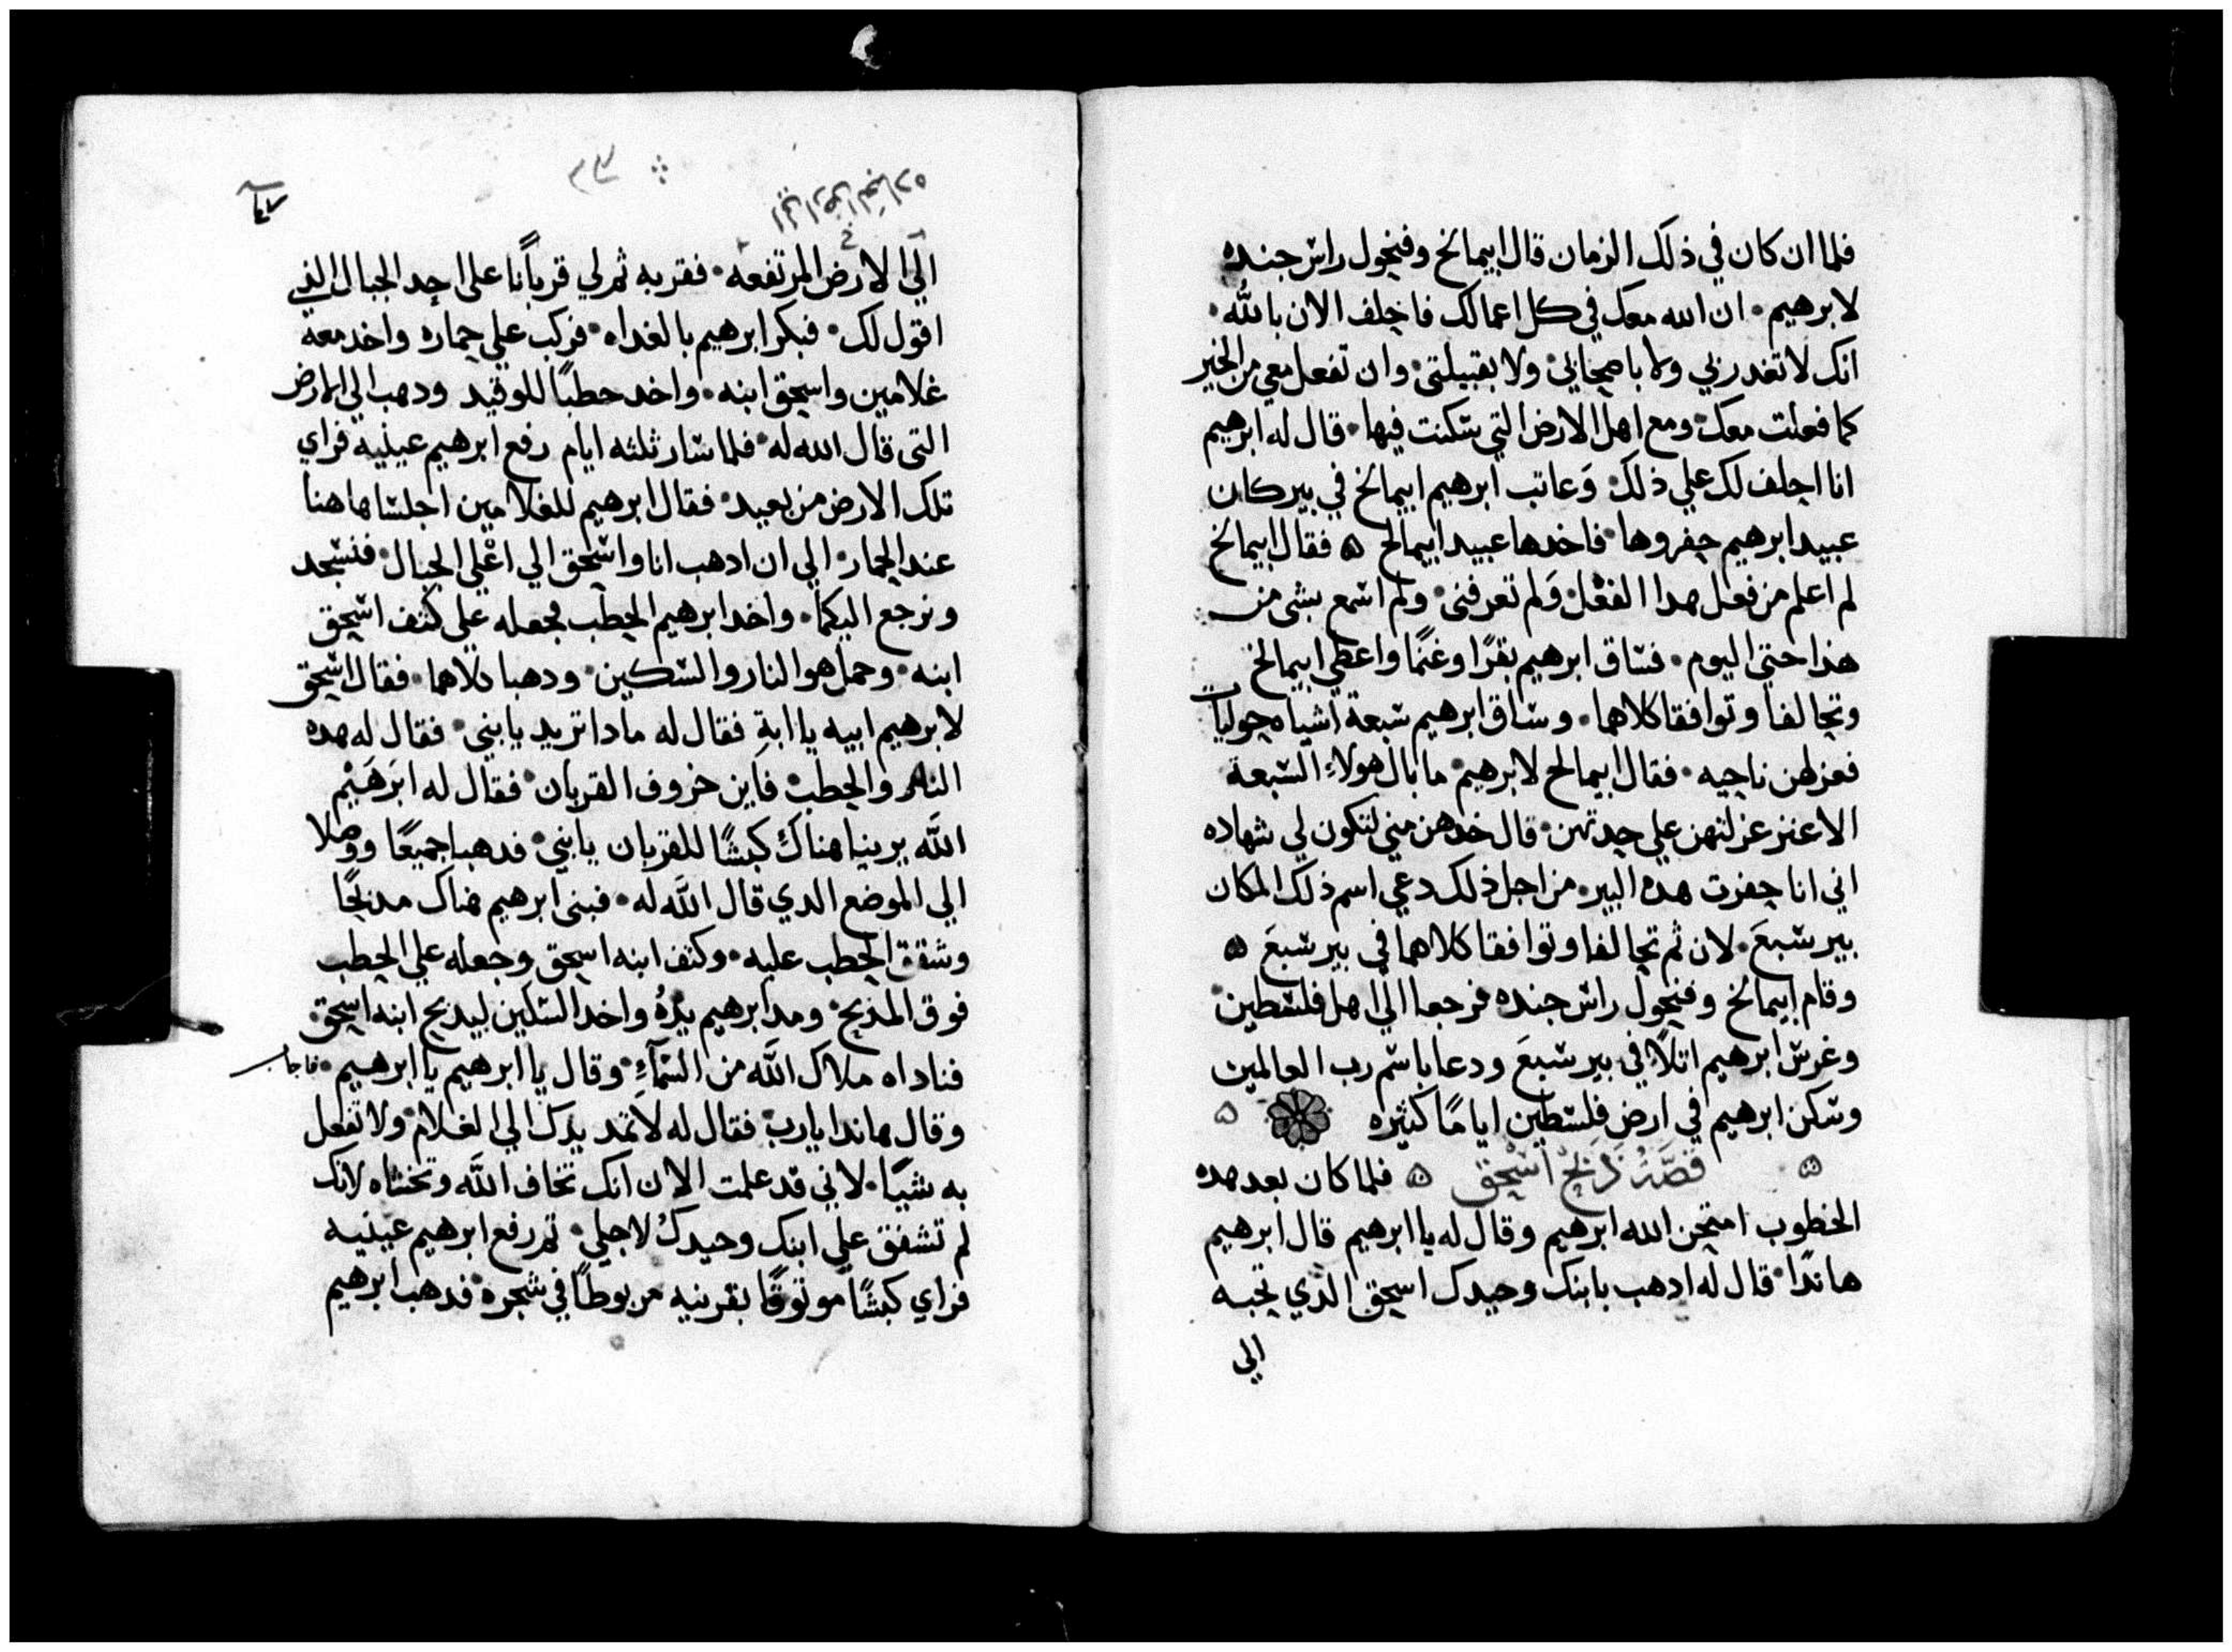 فلما ان كان في ذلك الزمان قال ابيمالخ وفيخول راس جنده
لابرهيم • ان الله معك في كل اعمالك فاحلف الان بالله •
انك لا تغدر بي ولا باصحابي • ولا بقبيلتي • وان تفعل معي من الخير
كما فعلت معك • ومع اهل الارض التي سكنت فيها • قال له ابرهيم
انا احلف لك علي ذلك • وعاتب ابرهيم ابيمالخ في بير كان
عبيد ابرهيم حفروها • فاخدها عبيد ابيمالخ ۞ فقال ابيمالخ
لم اعلم من فعل هدا الفعل • ولم تعرفني • ولم اسمع بشي من
هذا حتي اليوم • فساق ابرهيم بقرًا وغنمًا واعطي ابيمالخ
وتحالفا وتوافقا كلاهما • وساق ابرهيم سبعة اشياه حوليات
فعزلهن ناحيه • فقال ابيمالخ لابرهيم • ما بال هولاءِ السبعة
الاعنز عزلتهن علي حدتهن • قال خدهن مني لتكون لي شهاده
اني انا حفرت هده البير • من اجل ذلك دعي اسم ذلك المكان
بير سبعَ • لان ثم تحالفا وتوافقا كلاهما في بير سبعَ ۞
وقام ابيمالخ وفيخول راس جنده فرجعا الي اهل فلسطين •
وغرس ابرهيم اتلاً في بير سبعَ ودعا باسم رب العالمين
وسكن ابرهيم في ارض فلسطين ايامًا كثيره
قصة ذبح اسحق ۞ فلما كان بعد هده
الخطوب امتحن الله ابرهيم وقال له يا ابرهيم قال ابرهيم
هاندا • قال له ادهب بابنك وحيدك اسحق الذي تحبه
الي
الي الارض المرتفعه • فقربه ثم لي قربانًا على احد الجبال الذي
اقول لك • فبكر ابرهيم بالغداه • فركب علي حماره واخد معه
غلامين واسحق ابنه • واخد حطبًا للوقيد ودهب الي الارض
التي قال الله له • فلما سار ثلثه ايام رفع ابرهيم عينيه فراي
تلك الارض من بعيد • فقال ابرهيم للغلامين اجلسا هاهنا
عند الحمار • الي ان ادهب انا واسحق الي اعلي الجبال • فنسجد
ونرجع اليكما • واخد ابرهيم الحطب فجعله علي كتف اسحق
ابنه • وحمل هو النار والسكين • ودهبا كلاهما • فقال اسحق
لابرهيم ابيه يا ابةِ فقال له مادا تريد يا بني • فقال له هده
النار والحطب • فاين خروف القربان • فقال له ابرَهَيْم
الله يرينا هناك كبشًا للقربان يا بني • فدهبا جميعًا ووصلا
الي الموضع الدي قال الله له • فبنى ابرهيم هناك مدبحًا
وشقق الحطب عليه • وكتف ابنه اسحق وجعله علي الحطب
فوق المدبح • ومد ابرهيم يدهُ واخد السكين ليدبح ابنه اسحق •
فناداه ملاك الله من السمآءِ • وقال يا ابرهيم يا ابرهيم • فاجاب
وقال هاندا يارب • فقال له لا تمد يدك الي الغلام • ولا تفعل
به شيًا • لاني قد علمت الان انك تخاف الله وتخشاه لانك
لم تشفق علي ابنك وحيدك لاجلي • ثم رفع ابرهيم عينيه
فراي كبشًا موثوقًا بقرنيه مربوطًا في شجره • فدهب ابرهيم